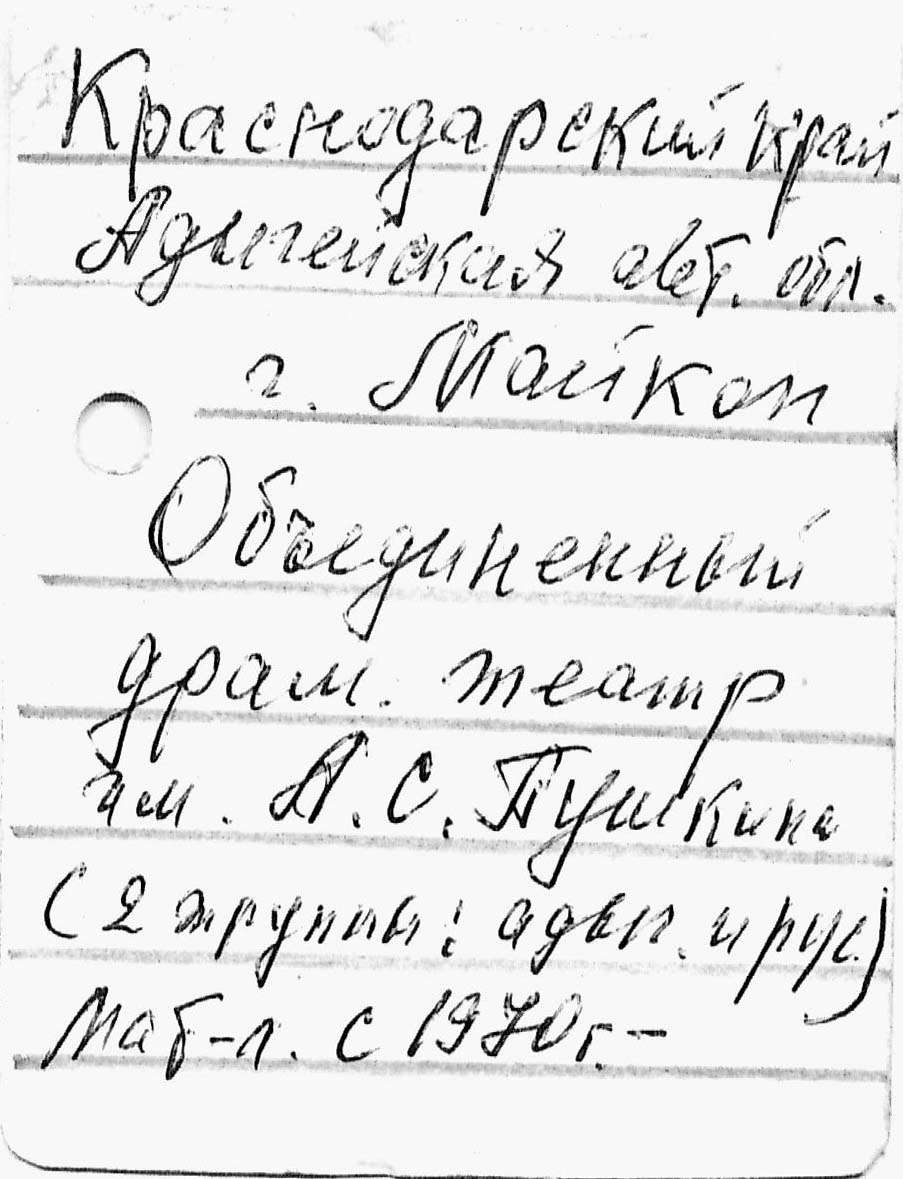 Краснодарский край
Адыгейская авт. обл.
г. Майкоп
Объединенный
драм. театр
им. А. С. Пушкина
( 2 труппы: адыг. и рус.)
Мат-л. с 1970 г. –